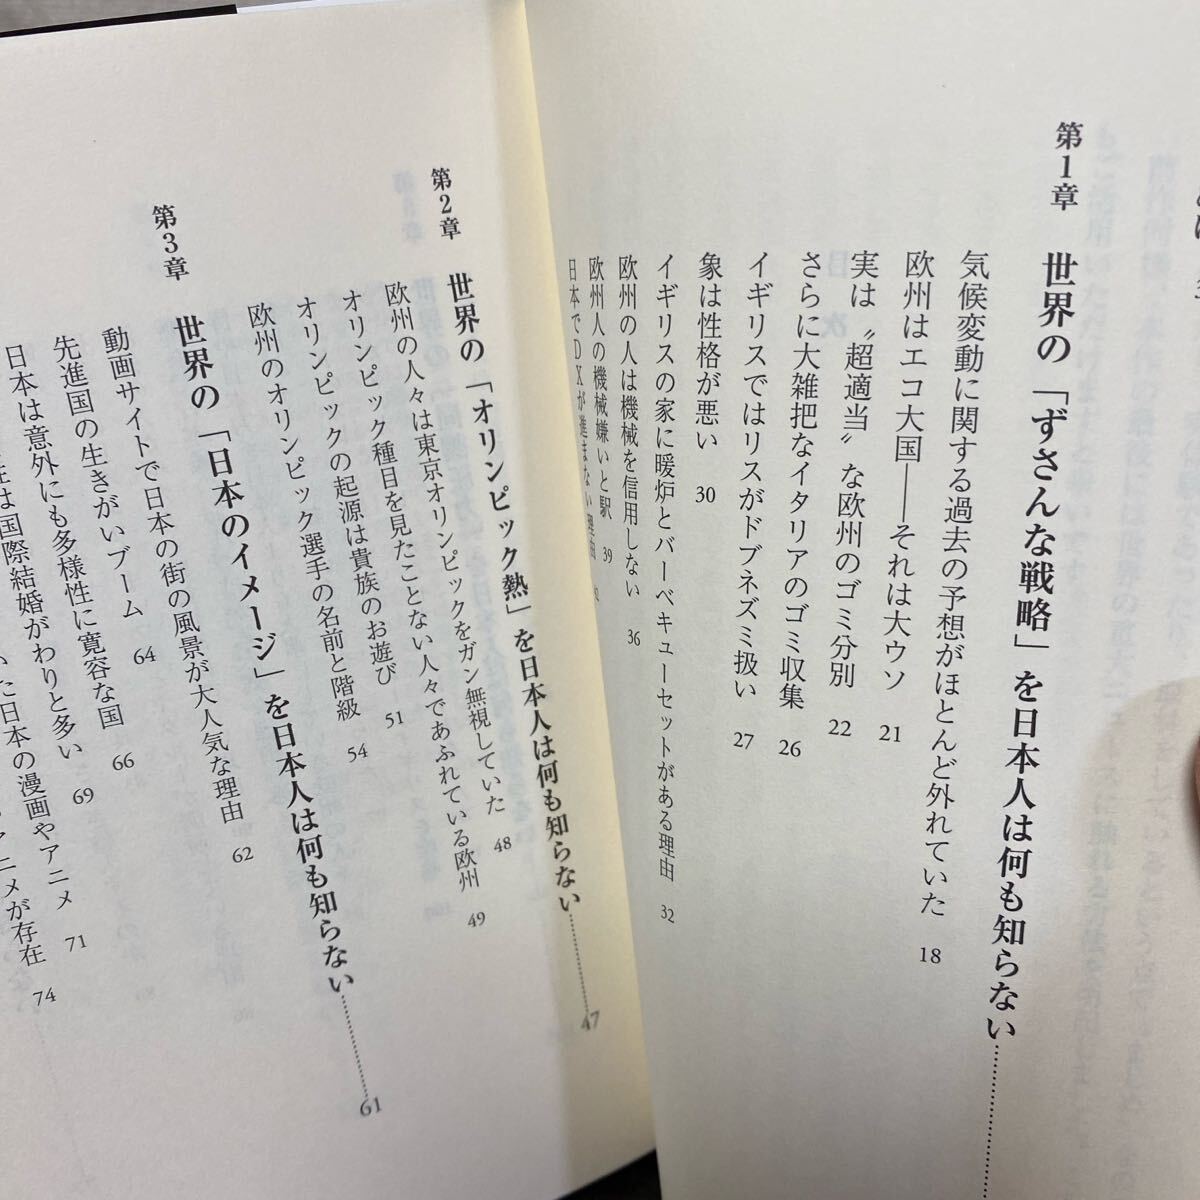 第1章 世界の「ずさんな戦略」を日本人は何も知らない
気候変動に関する過去の予想がほとんど外れていた 18
欧州はエコ大国――それは大ウソ 21
実は〝超適当〟な欧州のゴミ分別 22
さらに大雑把なイタリアのゴミ収集 26
イギリスではリスがドブネズミ扱い 27
象は性格が悪い 30
イギリスの家に暖炉とバーベキューセットがある理由 32
欧州の人は機械を信用しない 36
欧州人の機械嫌いと駅 39
日本でDXが進まない理由
第2章 世界の「オリンピック熱」を日本人は何も知らない 47
欧州の人々は東京オリンピックをガン無視していた 48
オリンピック種目を見たことない人々であふれている欧州 49
オリンピックの起源は貴族のお遊び 51
欧州のオリンピック選手の名前と階級 54
第3章 世界の「日本のイメージ」を日本人は何も知らない 61
動画サイトで日本の街の風景が大人気な理由 62
先進国の生きがいブーム 64
日本は意外にも多様性に寛容な国 66
は国際結婚がわりと多い 69
た日本の漫画やアニメ 71
アニメが存在 74